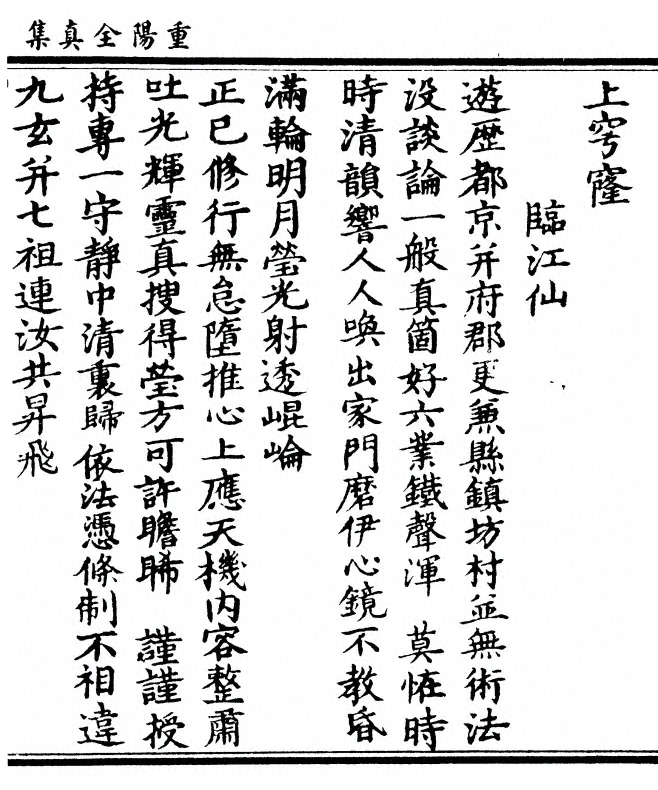 重陽全真集
上穹窿
臨江仙
遊歷都京并府郡更兼縣鎮坊村並無術法
没談論一般真箇好六業鐵聲渾 莫恠時
時清韻響人人喚出家門磨伊心鏡不教昏
滿輪明月瑩光射透崐崘
正己修行無怠墮推心上應天機内容整肅
吐光輝靈真搜得瑩方可許瞻睎 謹謹授
持專一守靜中清裏歸依法憑條制不相違
九玄并七祖連汝共昇飛